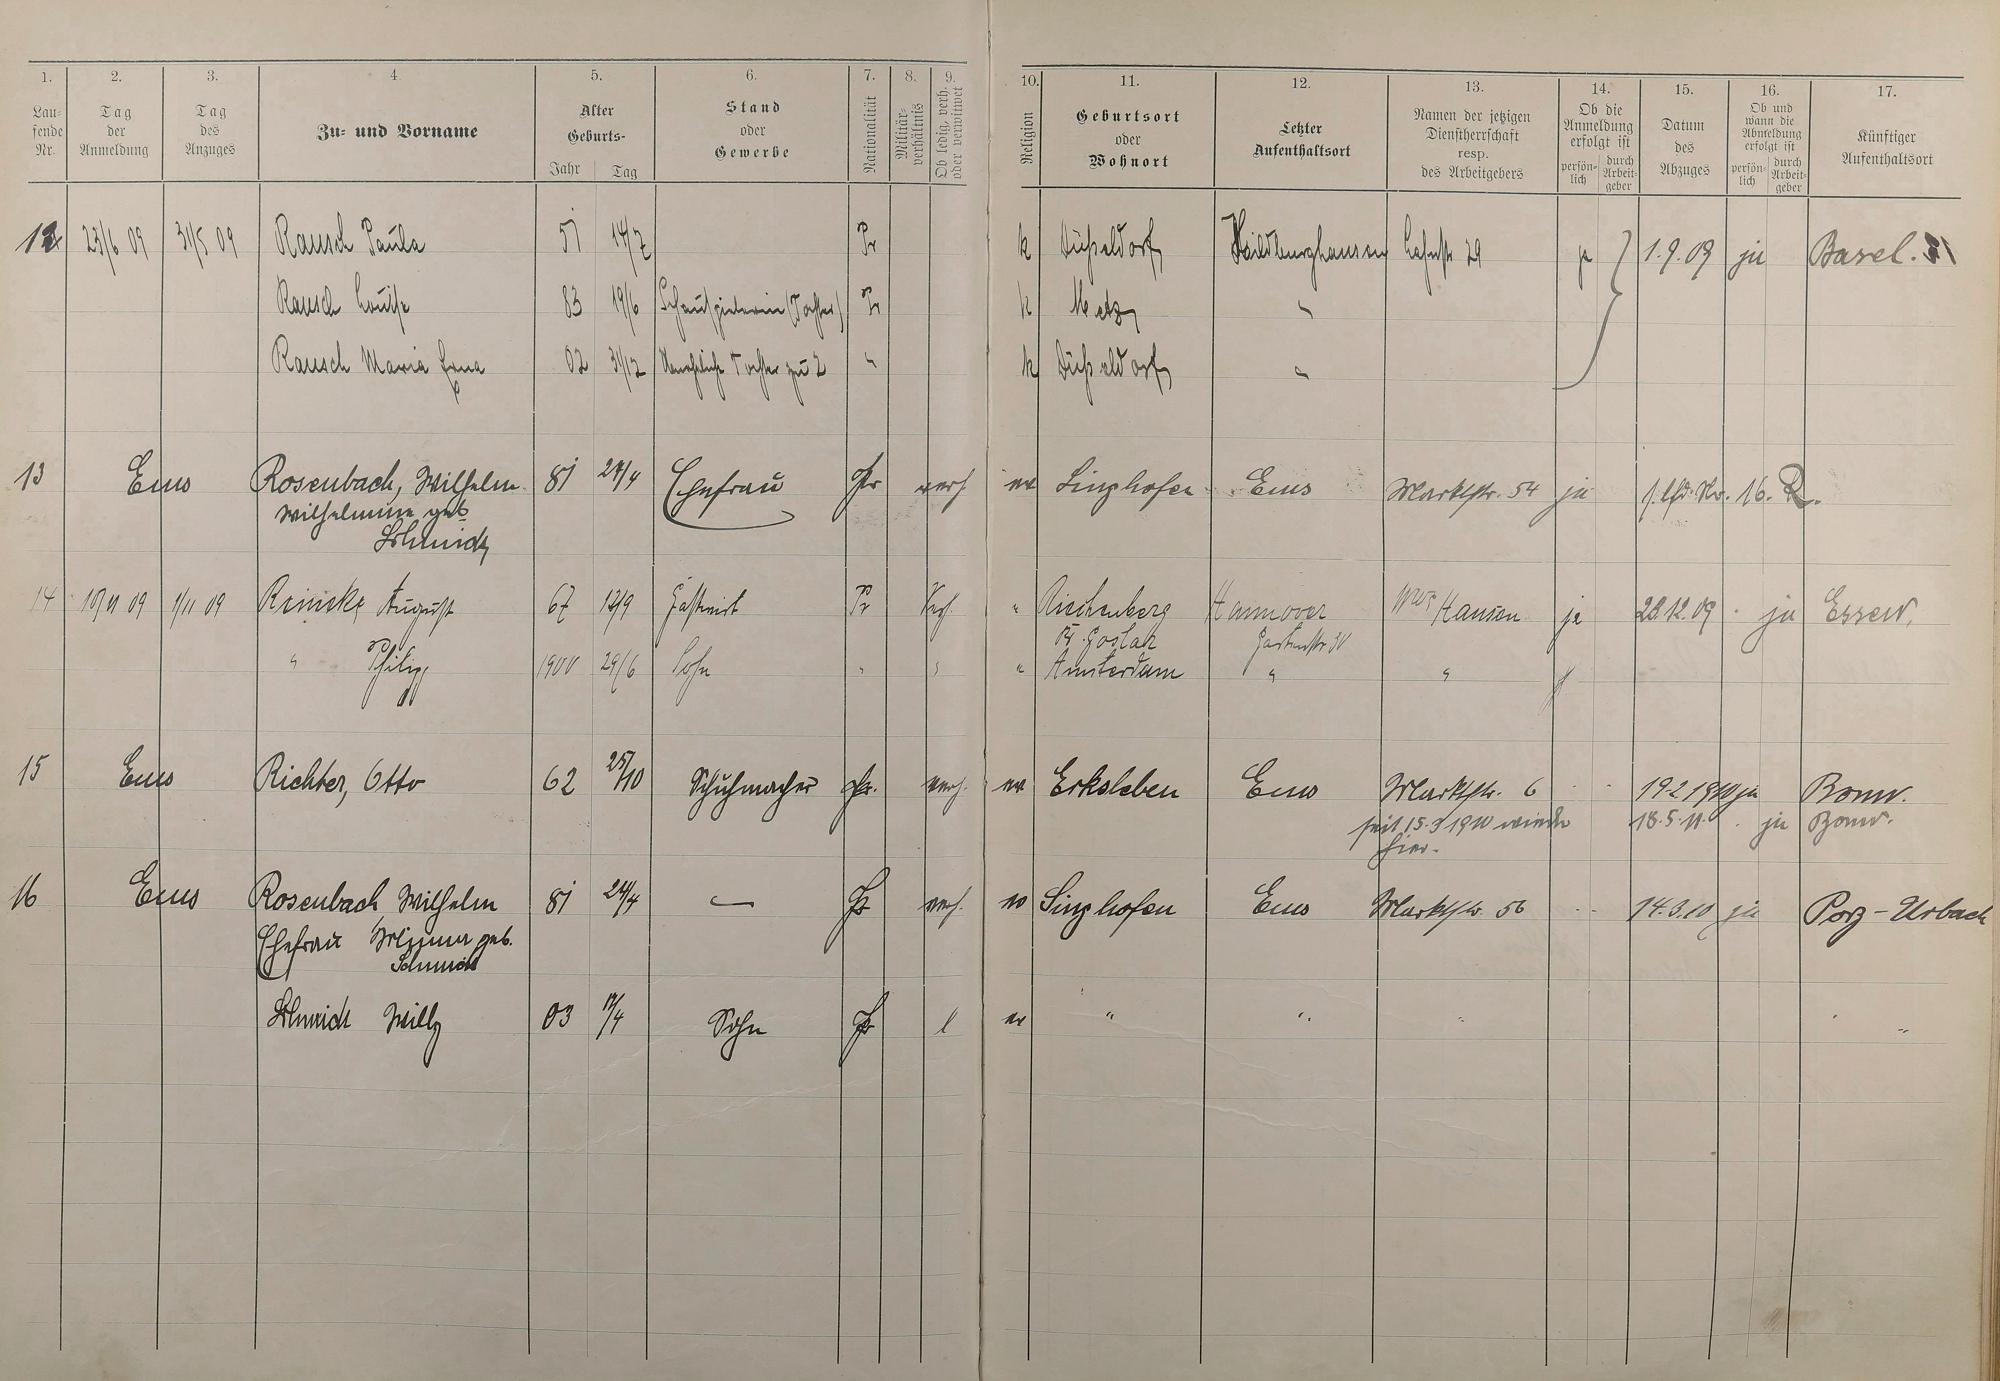 1. 2. 3. 4. 5. 6. 7. 8. 9. 10. 11. 12. 13. 14. 15. 16. 17.
Lau-
fende
Nr.
Tag
der
Anmeldung
Tag
des
Anzuges
Zu- und Vorname
Alter
Geburts-
Jahr Tag
Stand
oder
Gewerbe
Nationalität
Militär-
verhältnis
Ob ledig, verh.
oder verwitwet
Religion
Geburtsort
oder
Wohnort
Letzter
Aufenthaltsort
Namen der jetzigen
Dienstherrschaft
resp.
des Arbeitgebers
Ob die
Anmeldung
erfolgt ist
persön-
lich
durch
Arbeit-
geber
Datum
des
Abzuges
Ob und
wann die
Abmeldung
erfolgt ist
persön-
lich
durch
Arbeit-
geber
Künftiger
Aufenthaltsort
12 23/6 09 31/5 09 Rausch Paula 51 14/7 Pr k Düsseldorf Hildburghausen Lahnstr 29 ja 1.9.09 ja Basel.
Rausch Louise 83 19/6 Schauspielerin (Tochter) Pr k Metz "
Rausch Maria Erna 02 31/12 Uneheliche Tochter zu 2 " k Düsseldorf "
13 Ems Rosenbach, Wilhelm 81 24/4 Ehefrau Pr verh. ev Singhofen Ems Marktstr. 54 ja f. lfd. Nr. 16. R.
Wilhelmine geb
Schmidt
14 10/11 09 1/11 09 Reinicke August 67 12/9 Gastwirt Pr Verh. " Riechenberg Hannover Wwe Hansen ja 28.12.09 ja Essen.
Kr. Goslar Gartenstr 30
" Philipp 1900 29/6 Sohn " " " Amsterdam " "
15 Ems Richter, Otto 62 25/10 Schuhmacher Pr. verh. ev Erksleben Ems Marktstr. 6 19.2.1910 ja Bonn.
seit 15.3 1910 wieder 18.5.11. ja Bonn.
hier.
16 Ems Rosenbach, Wilhelm 81 24/4 — Pr verh. ev Singhofen Ems Marktstr. 56 14.3.10 ja Porz-Urbach
Ehefrau Minna geb.
Schmidt
Schmidt Willy 03 /4 Sohn Pr l ev " " " "